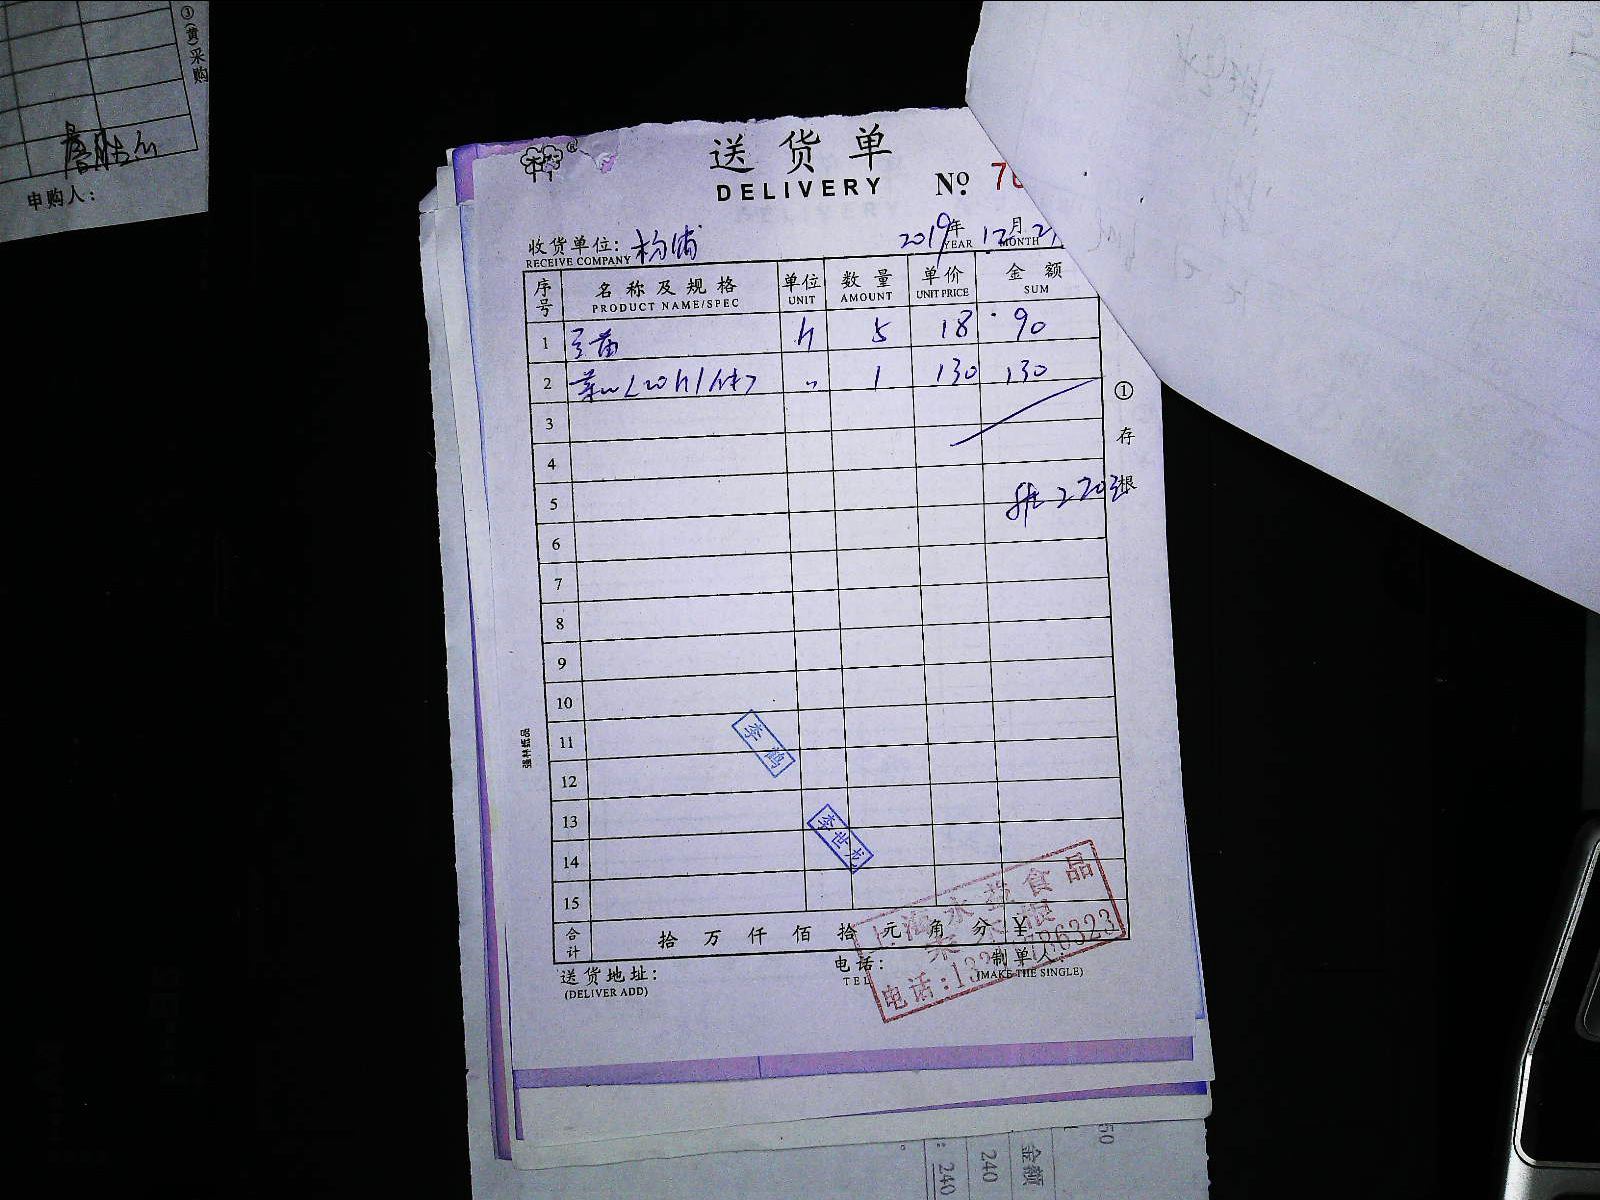 ③(黄)采购
申购人:
送货单
DELIVERY
№ 76
收货单位: 杨浦
RECEIVE COMPANY
2019年 12月 2
YEAR MONTH
序号 名称及规格 单位 数量 单价 金额
PRODUCT NAME/SPEC UNIT AMOUNT UNIT PRICE SUM
1 5 18 90
2 〃 1 130 130
3
4
5 270
6
7
8
9
10
11
12
13
14
15
①存根
强林纸品
李鹤
李世龙
合计 拾 万 仟 佰 拾 元 角 分 ¥
上海永益食品
电话:13 786323
送货地址: 电话: 制单人:
(DELIVER ADD) TEL (MAKE THE SINGLE)
50
金额
240
: 240